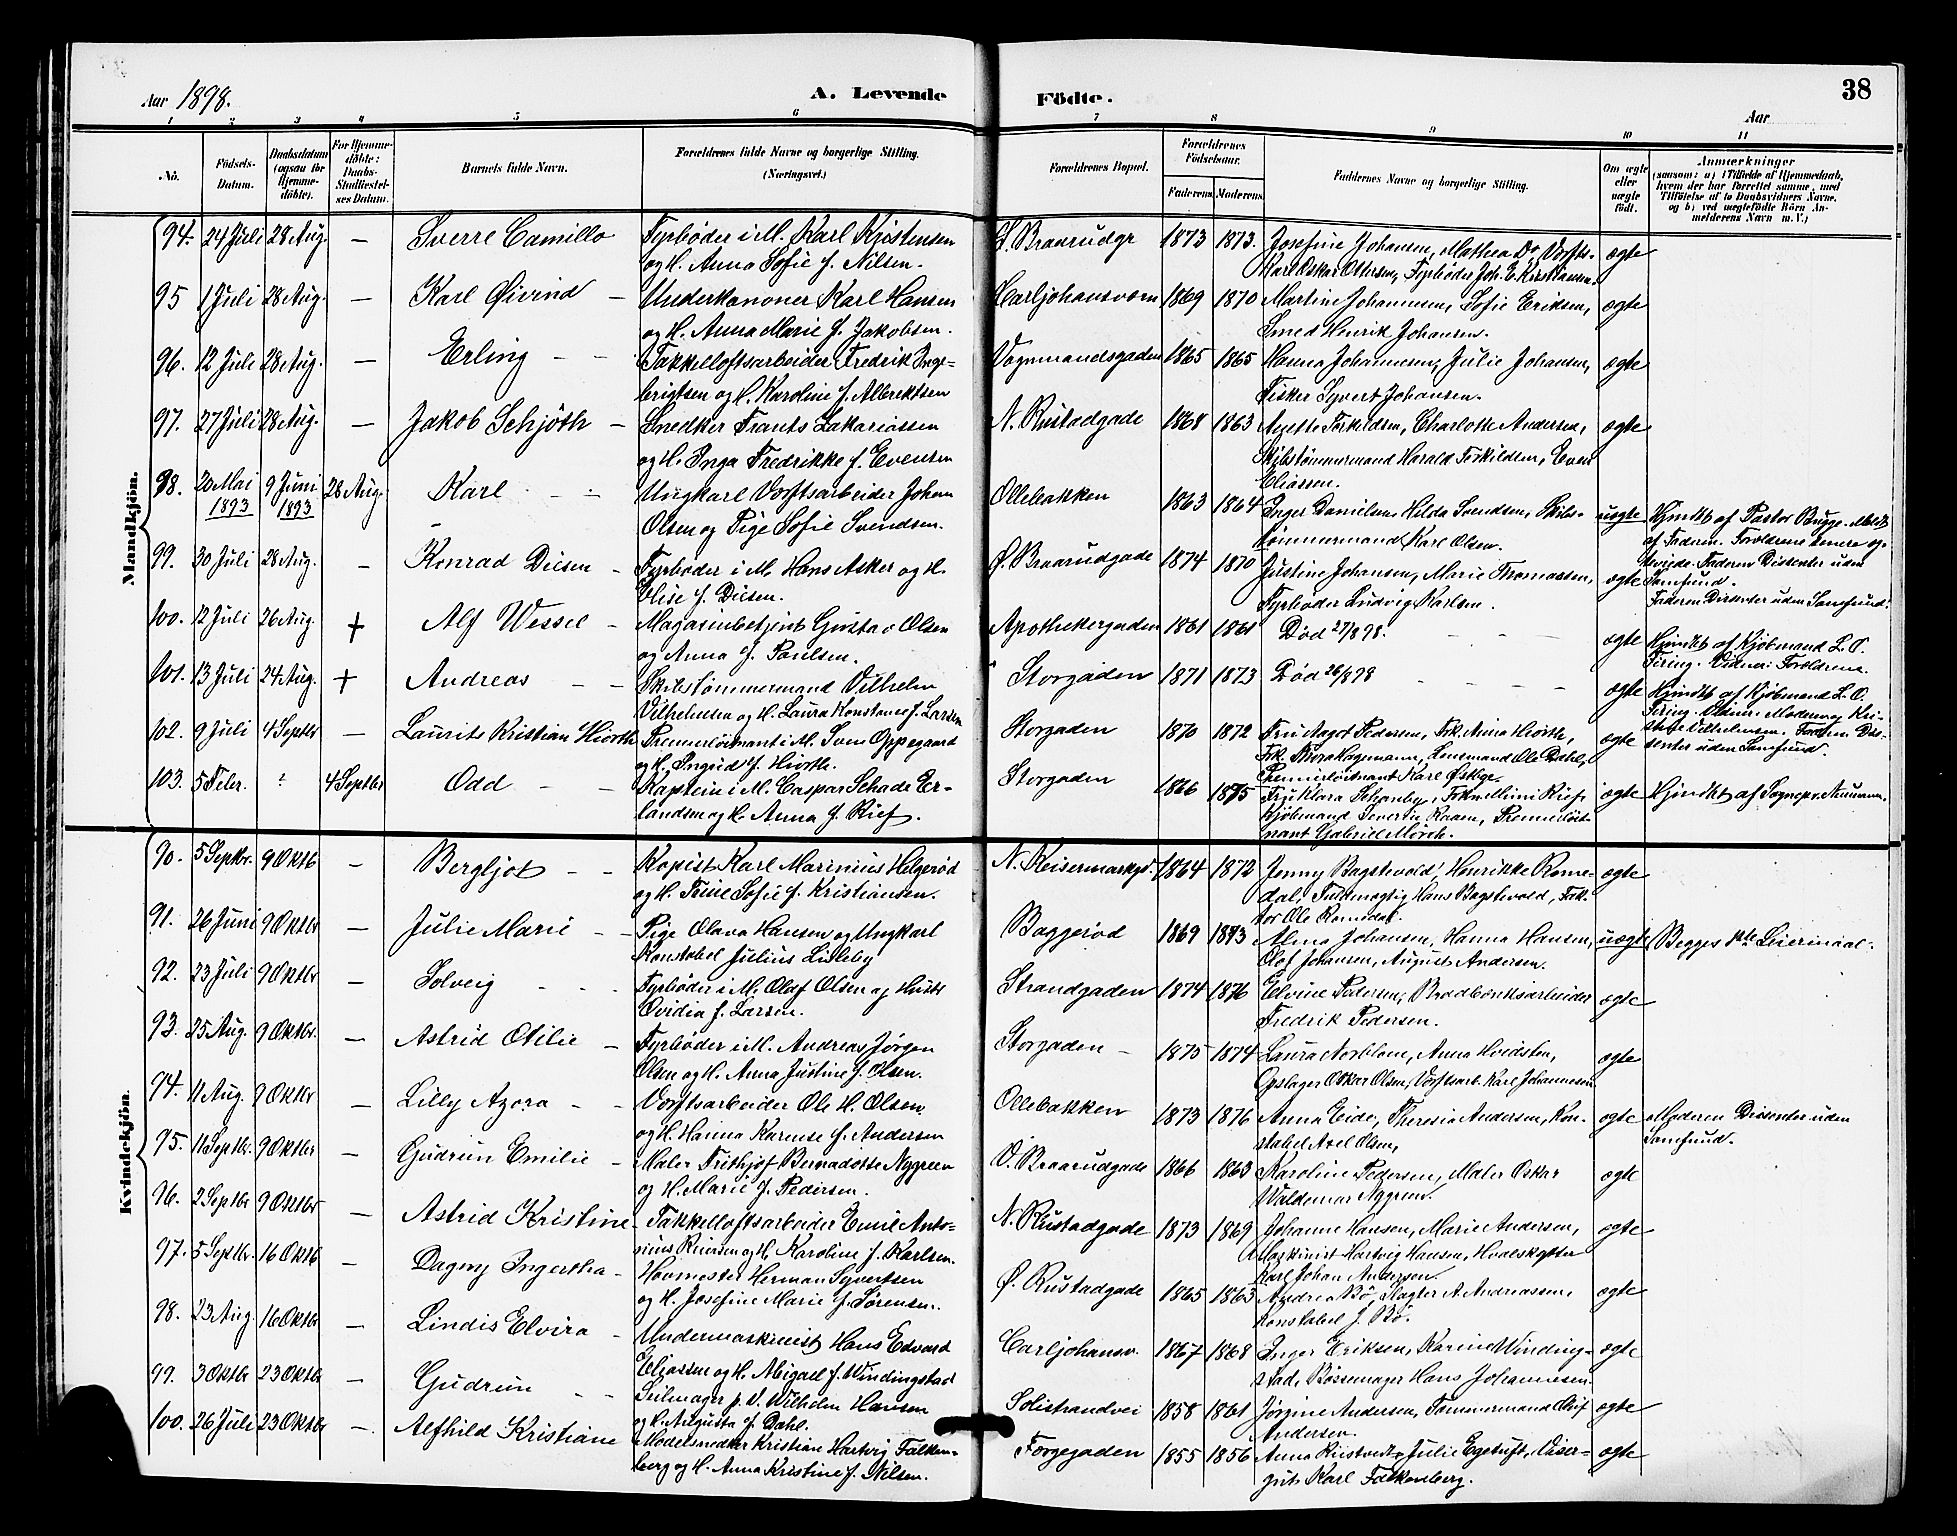 38
Aar 1898.
A. Levende Födte.
Aar
1 2 3 4 5 6 7 8 9 10 11
No.
Födsels-Datum.
Daabsdatum (ogsaa for Hjemme-döbte).
For Hjemme-döbte: Daabs-Stadfæstel-ses Datum.
Barnets fulde Navn.
Forældrenes fulde Navne og borgerlige Stilling. (Næringsvei.)
Forældrenes Bopæl.
Forældrenes Födselsaar.
Faderens. Moderens.
Faddernes Navne og borgerlige Stilling.
Om ægte eller uægte født.
Anmærkninger
(saasom: a) i Tilfælde af Hjemmedaab,
hvem der har forrettet samme, med
Tilföielse af to Daabsvidners Navne,
og b) ved uægtefödte Börn An-
melderens Navn m. V.)
Mandkjön.
94. 24 Juli 28 Aug. — Sverre Camillo Fyrbøder i M. Karl Kjostensen
og H. Anna Sofie f. Nilsen.
Braarudgt 1873 1873. Josefine Johansen, Mathea Do, Værfts-
Karl Oskar Ottersen, Fyrbøder Joh. E. Kristiansen. ægte
95 1 Juli 28 Aug. — Karl Øivind — Underkanoner Karl Hansen
og H. Anna Marie f. Jakobsen.
Carljohansværn 1869 1870 Martine Johannesen, Sofie Eriksen,
Smed Henrik Johansen. ægte
96. 12 Juli 28 Aug. — Erling — — Takkelloftsarbeider Fredrik Inge-
brigtsen og H. Karoline f. Albrektsen
Vognmandsgaden 1865 1865 Hanna Johannesen, Julie Johansen,
Fisker Syvert Johansen. ægte
97. 27 Juli 28 Aug. — Jakob Schjøth — Snedker Frants Zakariassen
og H. Inga Fredrikke f. Evensen
N. Rustadgade 1868 1863 Anette Torkildsen, Charlotte Andersen,
Skibstømmermand Harald Torkildsen, Even
Eliassen. ægte
98. 20 Mai 1893 9 Juni 1893 28 Aug. Karl — — Ungkarl Værftsarbeider Johan
Olsen og Pige Sofie Svendsen.
Ollebakken 1863 1864 Inger Danielsen, Hilda Svendsen, Skibs-
tømmermand Karl Olsen. uægte
Hjmdbt af Pastor Bugge. Meldt
af Faderen. Forældrene senere æg-
teviede. Faderen Dissenter uden
Samfund.
99. 30 Juli 28 Aug. — Konrad Diesen — Fyrbøder i M. Hans Asker og H.
Elise f. Diesen.
Ø. Braarudgade 1874 1870 Justine Johansen, Marie Thomassen,
Fyrbøder Ludvig Karlsen. ægte
Faderen Dissenter uden Samfund.
100. 12 Juli 26 Aug. + Alf Wessel — Magasinbetjent Gustav Olsen
og Anna f. Paulsen.
Apothekergaden 1861 1861 Død 27/8 98. ægte
Hjmdbt af Kjøbmand L. O.
Firing. Vidner: Forældrene.
101. 13 Juli 24 Aug. + Andreas — — Skibstømmermand Vilhelm
Vilhelmsen og H. Laura Konstance f. Larsen
Storgaden 1871 1873 Død 26/8 98 ægte
Hjmdbt af Kjøbmand L. O.
Firing. Vidner: Moderen og Kri-
stine Vilhelmsen. Faderen Dis-
senter uden Samfund.
102. 9 Juli 4 Septbr — Laurits Kristian Hiorth Premierløitnant i M. Sven Oppegaard
og H. Ingrid f. Hiorth.
Storgaden 1870 1872 Fru Aagot Pedersen, Frk. Anna Hiorth,
Frk. Thora Hagemann, Lensmand Ole Dahl,
Premierløitnant Karl Østbye. ægte
103. 5 Feber. ? 4 Septbr Odd — — Kaptein i M. Caspar Schade Er-
landsen og H. Anna f. Rief.
Storgaden 1866 1875 Fru Klara Schanby, Frkn Mimi Rief,
Kjøbmand Severin Kaaen, Premierløit-
nant Gabriel Mörch. ægte Hjmdbt af Sognepr. Neumann.
Kvindekjön.
90. 5 Septbr. 9 Oktb — Bergljot — — Kopist Karl Marinius Helgerød
og H. Trine Sofie f. Kristiansen.
N. Keisermarkgd. 1864 1872 Jenny Bagstevold, Henrikke Rome-
dal, Fuldmægtig Hans Bagstevold, Fak-
tor Ole Romedal. ægte
91. 26 Juni 9 Oktbr — Julie Marie — — Pige Olava Hansen og Ungkarl
Konstabel Julius Lisleby
Baggerød 1869 1873 Alma Johansen, Hanna Hansen,
Olaf Johansen, August Andersen. uægte Begges 1ste Leiermaal.
92. 23 Juli 9 Oktbr — Solveig — — — Fyrbøder i M. Olaf Olsen og Hustr
Ovidia f. Larsen.
Strandgaden 1874 1876 Elvine Pedersen, Bradbænksarbeider
Fredrik Pedersen. ægte
93. 25 Aug. 9 Oktbr. — Astrid Otilie — Fyrbøder i M. Andreas Jørgen
Olsen og H. Anna Justine f. Olsen.
Storgaden — 1875 1874 Laura Norblom, Anna Hvidsten,
Opslager Oskar Olsen, Værftsarb. Karl Johannesen ægte
94. 11 Aug. 9 Oktbr — Lilly Azora — — Værftsarbeider Ole H. Olsen
og H. Hanna Karense f. Andersen
Ollebakken 1873 1876 Anna Eide, Theresia Andersen, Kon-
stabel Axel Olsen, ægte Moderen Dissenter uden
Samfund.
95. 11 Septbr. 9 Oktbr — Gudrun Emilie — Maler Frithjof Bernadotte Nygreen
og H. Marie f. Pedersen.
V. Braarudgade 1866 1863 Karoline Pedersen, Maler Oskar
Valdemar Nygreen. ægte
96. 2 Septbr 9 Oktbr — Astrid Kristine — Takkelloftsarbeider Emil Anto-
nius Reiersen og H. Karoline f. Karlsen.
N. Rustadgade 1873 1869 Johanne Hansen, Marie Andersen,
Maskinist Hartvig Hansen, Hvalskytter
Karl Johan Andersen. ægte
97. 5 Septbr. 16 Oktb — Dagny Ingertha — Hovmester Herman Syvertsen
og H. Josefine Marie f. Sørensen.
Ø. Rustadgade 1865 1863 Andrea Bø, Slagter A. Andreassen,
Konstabel J. Bø. ægte
98. 23 Aug. 16 Oktbr — Lindis Elvira — Undermaskinist Hans Edvard
Eliassen og H. Abigael f. Windingstad
Carljohansv. 1867 1868 Inger Eriksen, Karine Winding-
stad, Bøssemager Hans Johannesen. ægte
99. 3 Oktbr 23 Oktbr — Gudrun — — Seilmager p. V. Wilhelm Hansen
og H. Augusta f. Dahl.
Solistrandvei 1858 1861 Jørgine Andersen, Tømmermand Oluf
Andersen. ægte
100. 26 Juli 23 Oktbr — Alfhild Kristiane Modelsnedker Kristian Hartvig Falken-
berg og H. Anna Kristine f. Nilsen.
Torgegaden 1855 1856 Anna Kristvedt, Julie Egetuft, Viser-
gut Karl Falkenberg. ægte